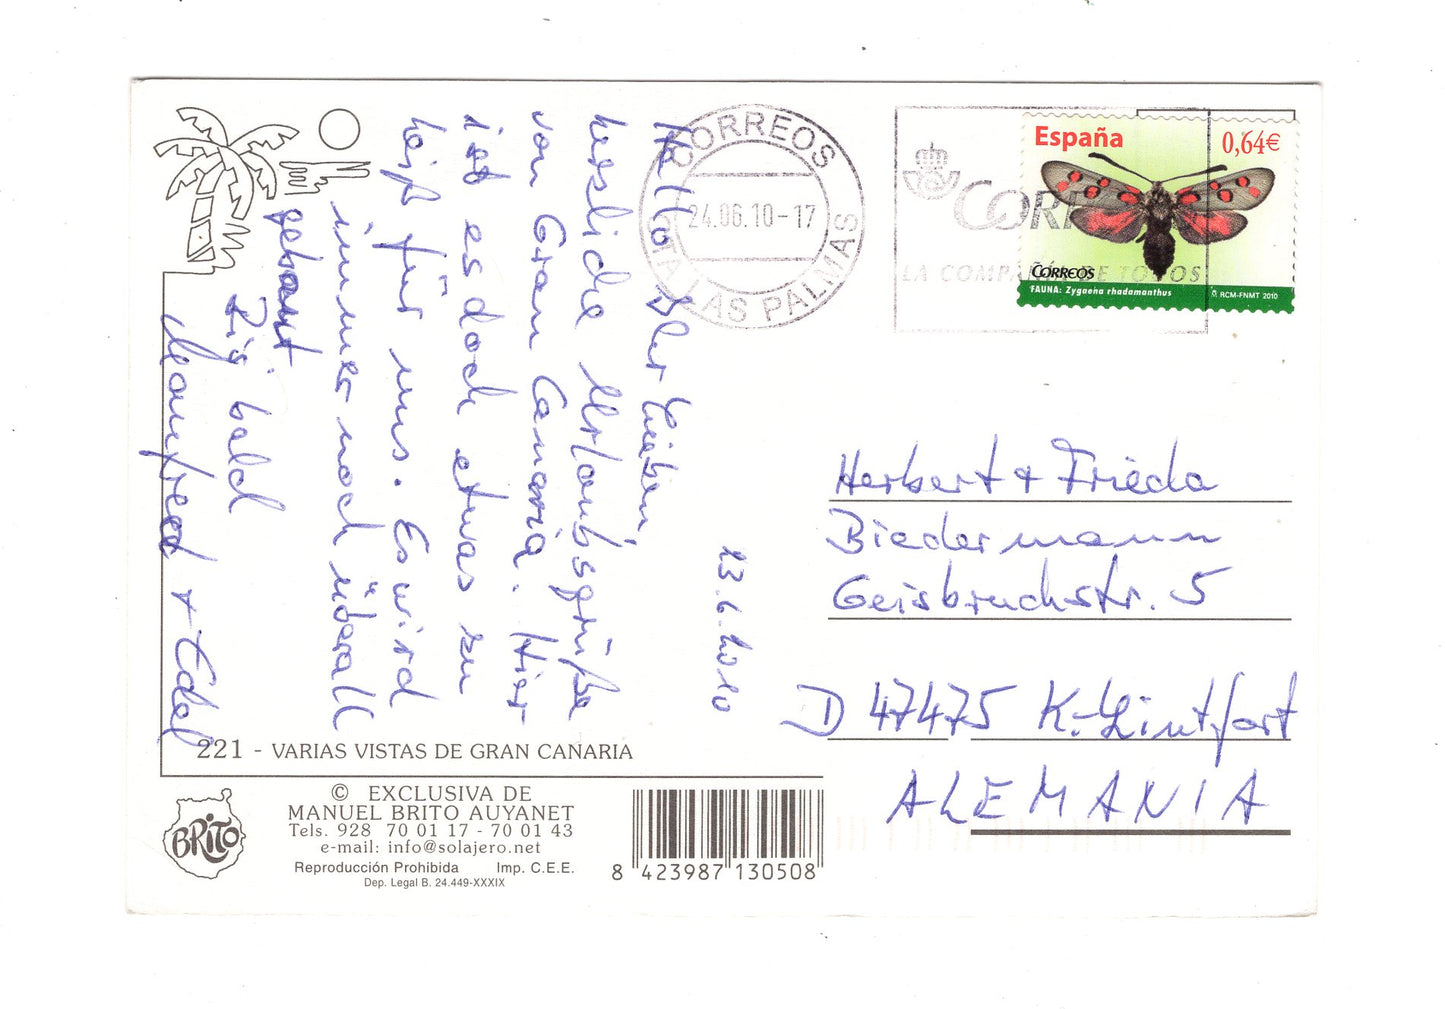 Hallo Ihr Lieben,
herzliche Urlaubsgrüße
von Gran Canaria. Hier
ist es doch etwas zu
heiß für uns. Es wird
immer noch überall
gebaut
Bis bald
Manfred + Edel
23.6.2010
221 - VARIAS VISTAS DE GRAN CANARIA
BRITO
© EXCLUSIVA DE
MANUEL BRITO AUYANET
Tels. 928 70 01 17 - 70 01 43
e-mail: info@solajero.net
Reproducción Prohibida Imp. C.E.E.
Dep. Legal B. 24.449-XXXIX
8 423987 130508
CORREOS
24.06.10-17
CTA LAS PALMAS
CORR
LA COMPAÑÍA DE TODOS
España 0,64€
CORREOS
FAUNA: Zygaena rhadamanthus © RCM-FNMT 2010
Herbert + Frieda
Biedermann
Geisbruchstr. 5
D 47475 K.-Lintfort
ALEMANIA